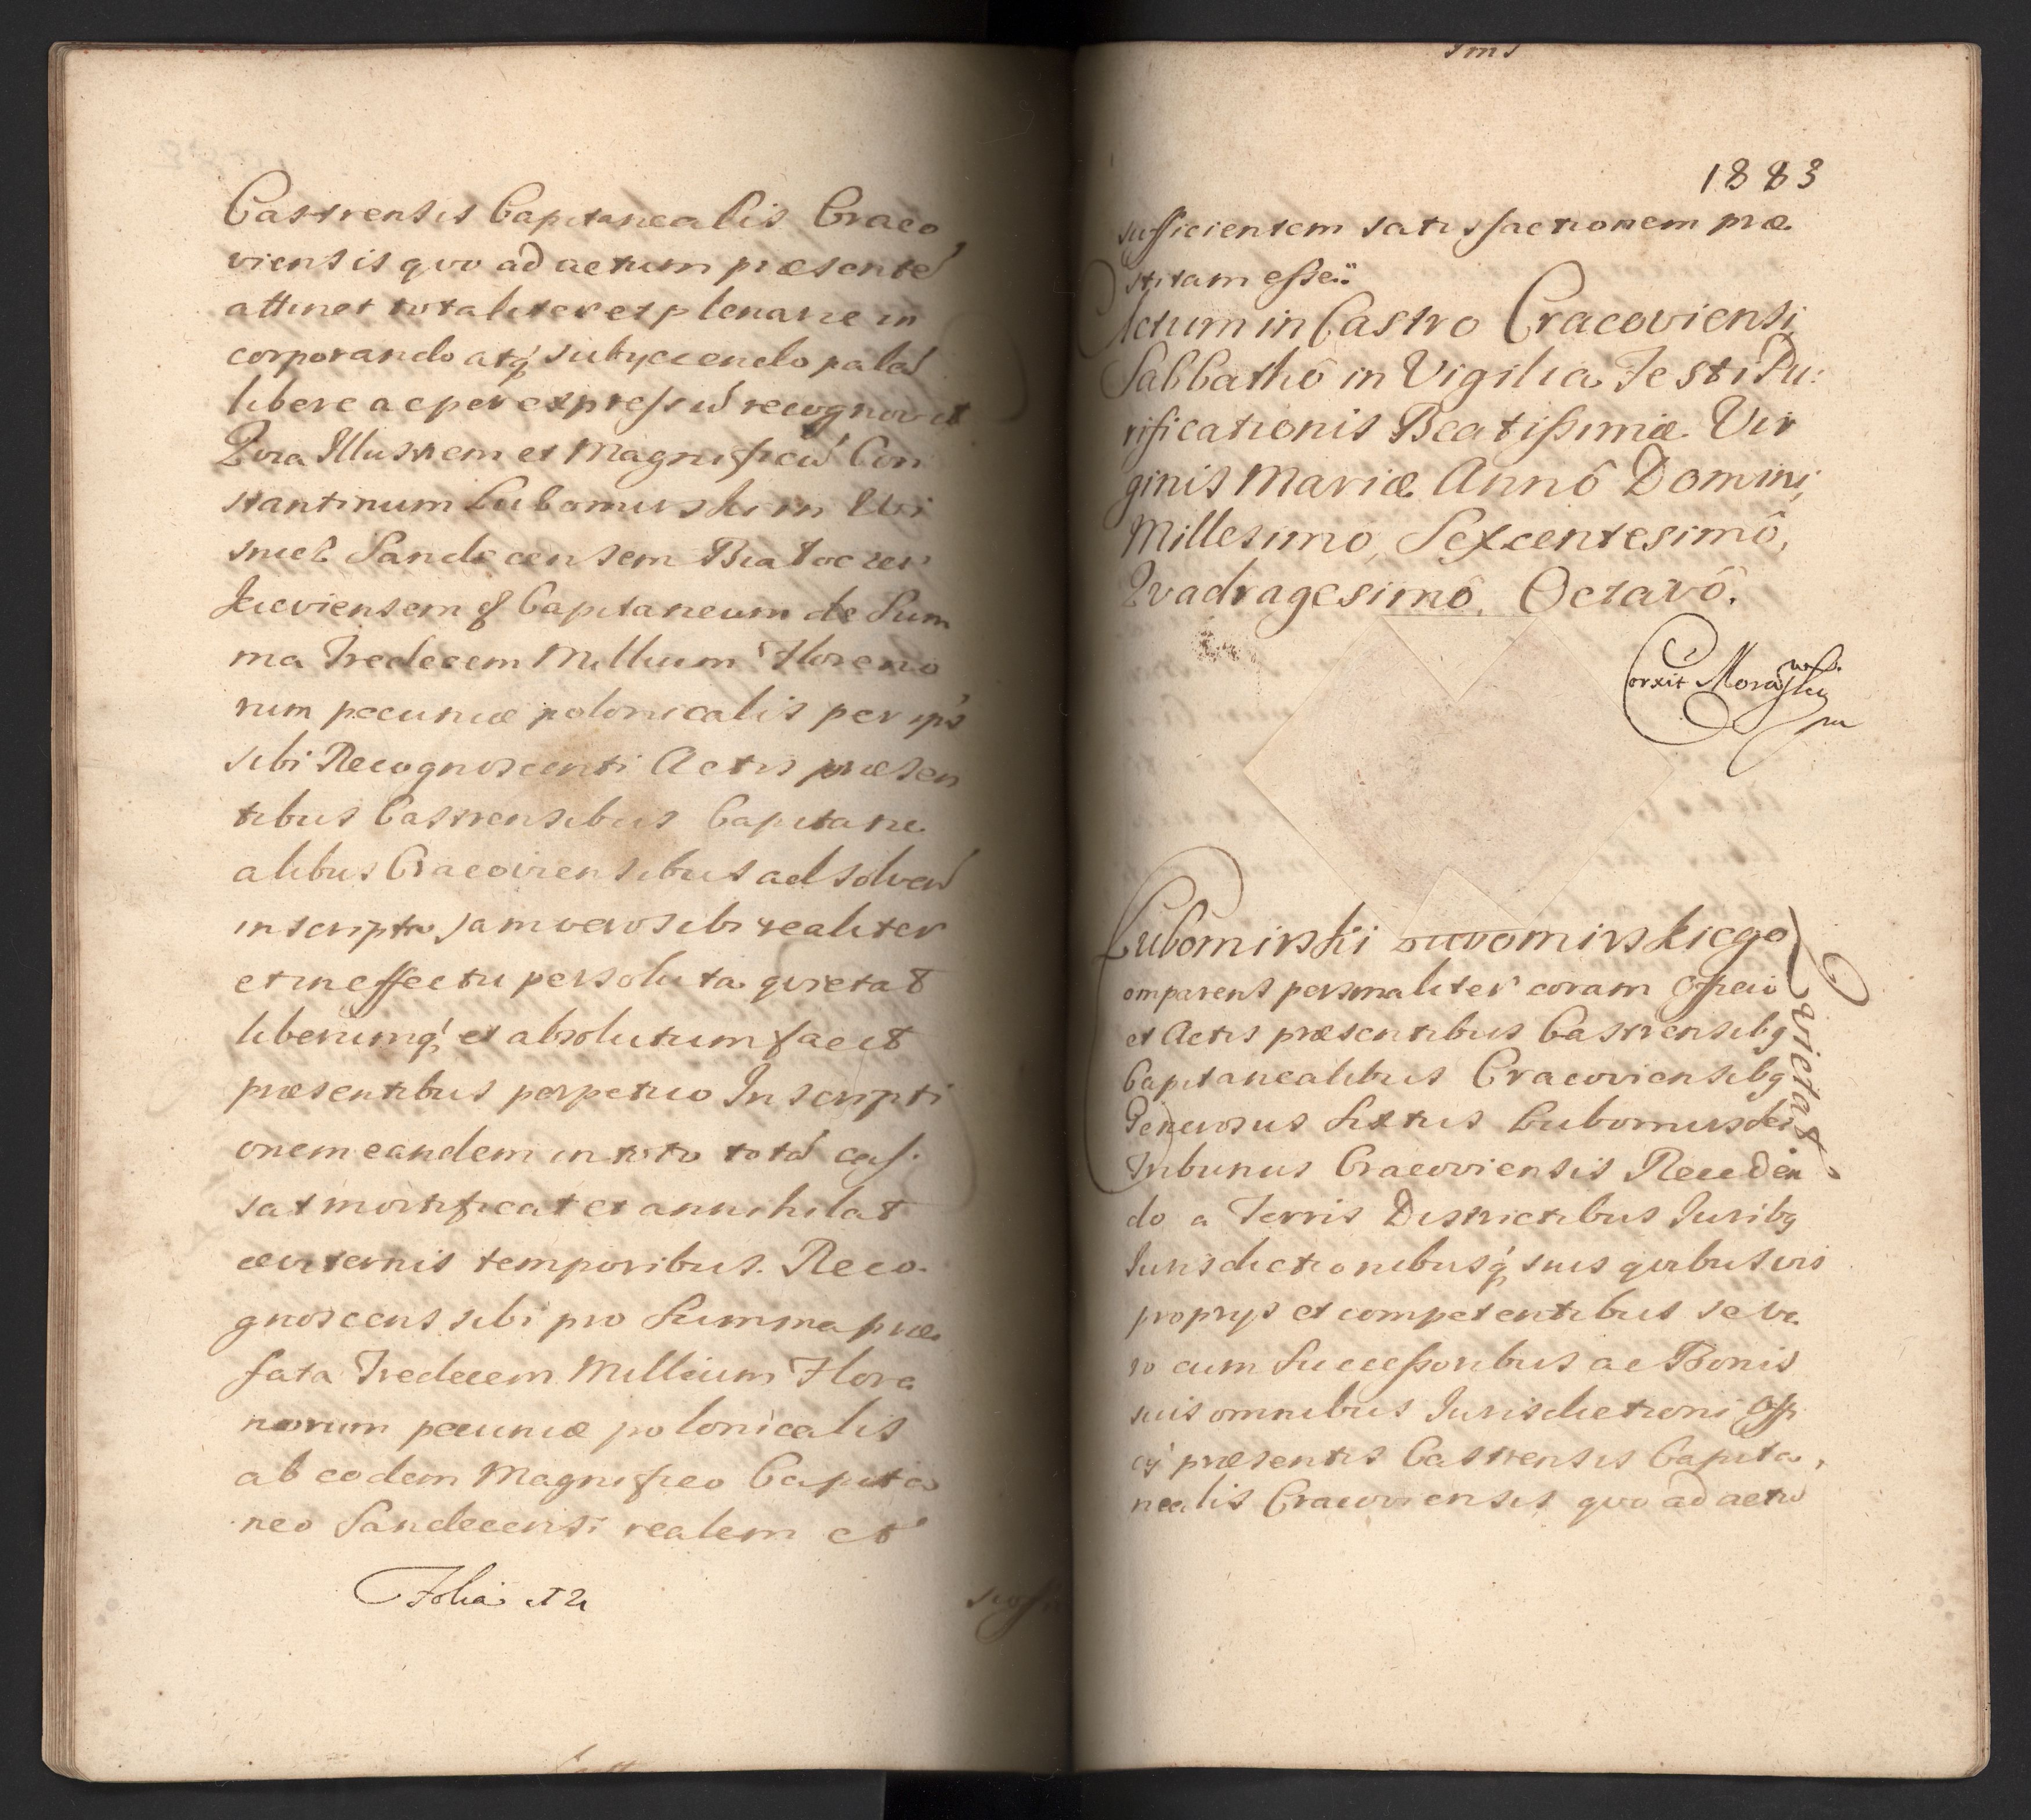 Castrensis Capitanealis Craco
viensis qvo ad actum præsentẽ
attinet totaliter et plenarie in
corporando atq́ subyciendo palã
libere ac per expressũ recognovit
Qvia Illustrem et Magnificũ Con
stantinum Lubomirski in Wi
snicz Sandecensem Białocer
kieviensem q̢ Capitaneum de Sum
ma Tredecem Millium Floreno
rum pecuniæ polonicalis per ip̃s
sibi Recognoscenti Actis præsen
tibus Castrensibus Capitane
alibus Cracoviensibus ad solven̄
inscripta jam vero sibi realiter
et in effectu persoluta qvietat
liberumq́ et absolutum facit
præsentibus perpetuo Inscripti
onem eandem in toto totã cas
sat mortificat et annihilat
æviternis temporibus. Reco
gnoscens sibi pro Summa præ
fata Tredecem Millium Flore
norum pecuniæ polonicalis
ab eodem Magnifico Capita
neo Sandecensi realem et
Folia
1883
sufficientem satisfactionem præ
stitam esse.
Actum in Castro Cracoviensi
Sabbathô in Vigilia Festi Pu:
rificationis Beatissimæ Vir
ginis Mariæ Annô Domini
Millesimo, Sexcentesimô,
Qvadragesimô, Octavô.
Corxit Morawski
mp
Lubomirski Lubomirskiego
Qvietat
omparens personaliter coram Officio
et Actis præsentibus Castrensibq
Capitanealibus Cracoviensibq
Generosus Sixtus Lubomirski
Tribunus Cracoviensis Receden
do a Terris Districtibus Juribq
Jurisdictionibusq́ suis qvibusvis
proprys et competentibus se ve
ro cum Successoribus ac Bonis
suis omnibus Jurisdictioni Offi
cÿ præsentis Castrensis Capita,
nealis Cracoviensis qvo ad actũ